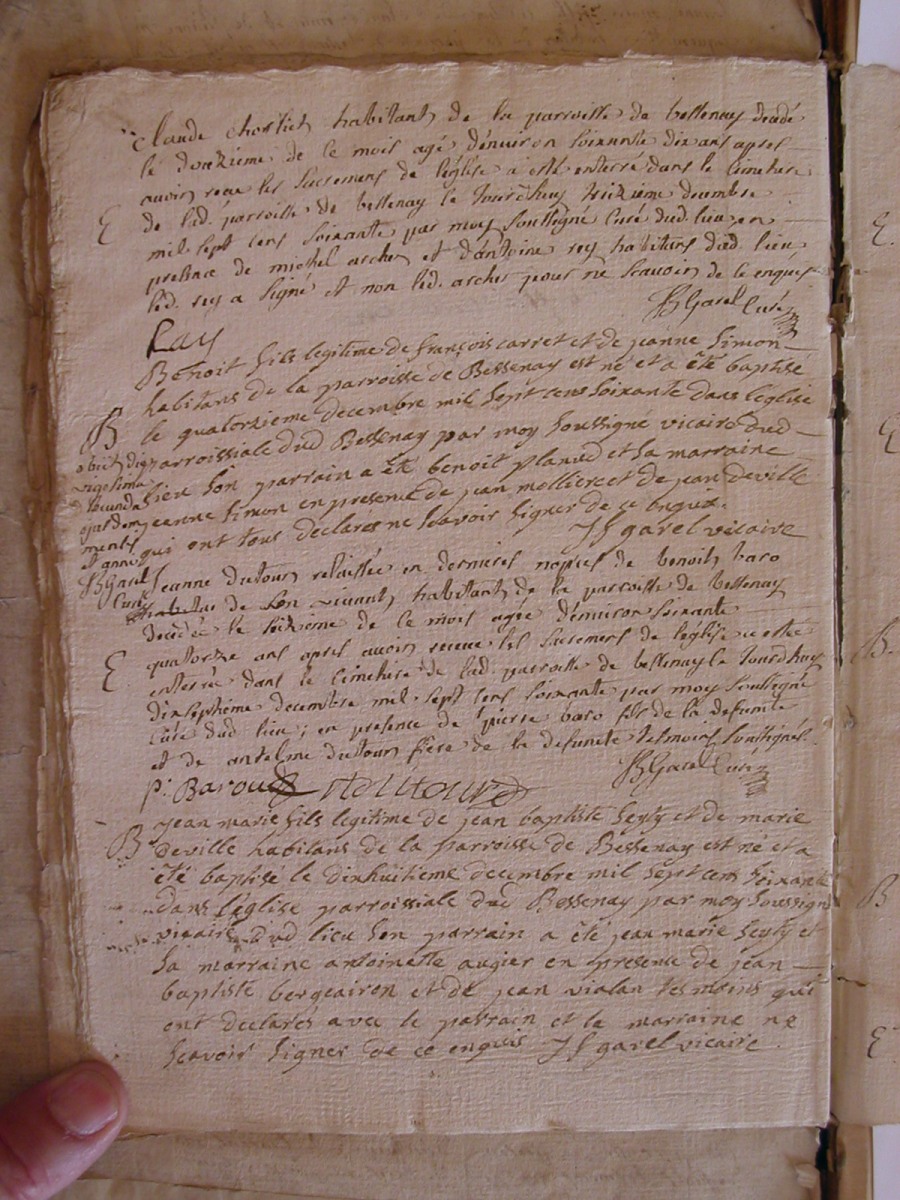 Claude Chorliet habitant de la parroisse de bessenay decedé
le douzieme de ce mois agé d'environ soixante dix ans apres
avoir receu les sacremens de l'église a esté enterré dans le cimetiere
de lad. parroisse de bessenay le jourdhuy treizieme decembre
E
mil sept cens soixante par moy soussigné Curé dud. lieu en
presence de michel archer et d'antoine rey habitans dud. lieu
led. rey a signé et non led. archer pour ne scavoir de ce enquis
Garel Curé
Ray
Benoit fils legitime de françois carret et de jeanne Simon
habitans de la parroisse de Bessenay est né et a été baptisé
le quatorzieme decembre mil sept cens soixante dans l'église
B
parroissiale dud Bessenay par moy soussigné vicaire dud
obiit die
vigesima
secunda
ejusdem
mensis
et anni
Garel
Curé
lieu son parrain a été benoit planud et sa marraine
jeanne Simon en presence de jean mollieret et de jean deville
qui ont tous declarés ne scavoir signer de ce enquis.
JF garel vicaire
Jeanne dutour relaissée en dernieres nopces de benoit baro
de son vivant habitant de la parroisse de bessenay
decedée le seizieme de ce mois agée d'environ soixante
E
quattorze ans apres avoir receue les sacremens de l'église a estée
enterrée dans le cimetiere de lad. parroisse de bessenay le jourdhuy
dixseptieme decembre mil sept cens soixante par moy soussigné
Curé dud lieu ; en presence de pierre baro fils de la defunte
et de antelme dutour frere de la defunte temoins soussignés
Garel Curé
p. Barou
B
jean marie fils legitime de jean baptiste Seyty et de marie
deville habitans de la parroisse de Bessenay est né et a
été baptisé le dixhuitieme decembre mil sept cens soixante
dans l'église parroissiale dud Bessenay par moy soussigné
vicaire dud lieu son parrain a été jean marie Seyty et
sa marraine antoinette augier en presence de jean
baptiste bergeairon et de jean vialan tesmoins qui
ont declarés avec le parrain et la marraine ne
scavoir signer de ce enquis JF garel vicaire
E.
E
B.
B
E